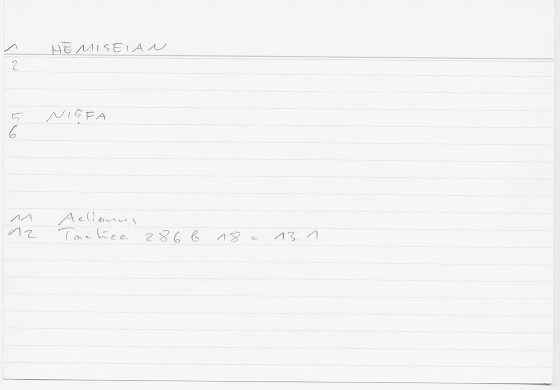 1 HĒMISEIAN
2
5 NIṢFA
6
11 Aelianus
12 Tactica 286 B 18 = 13.1